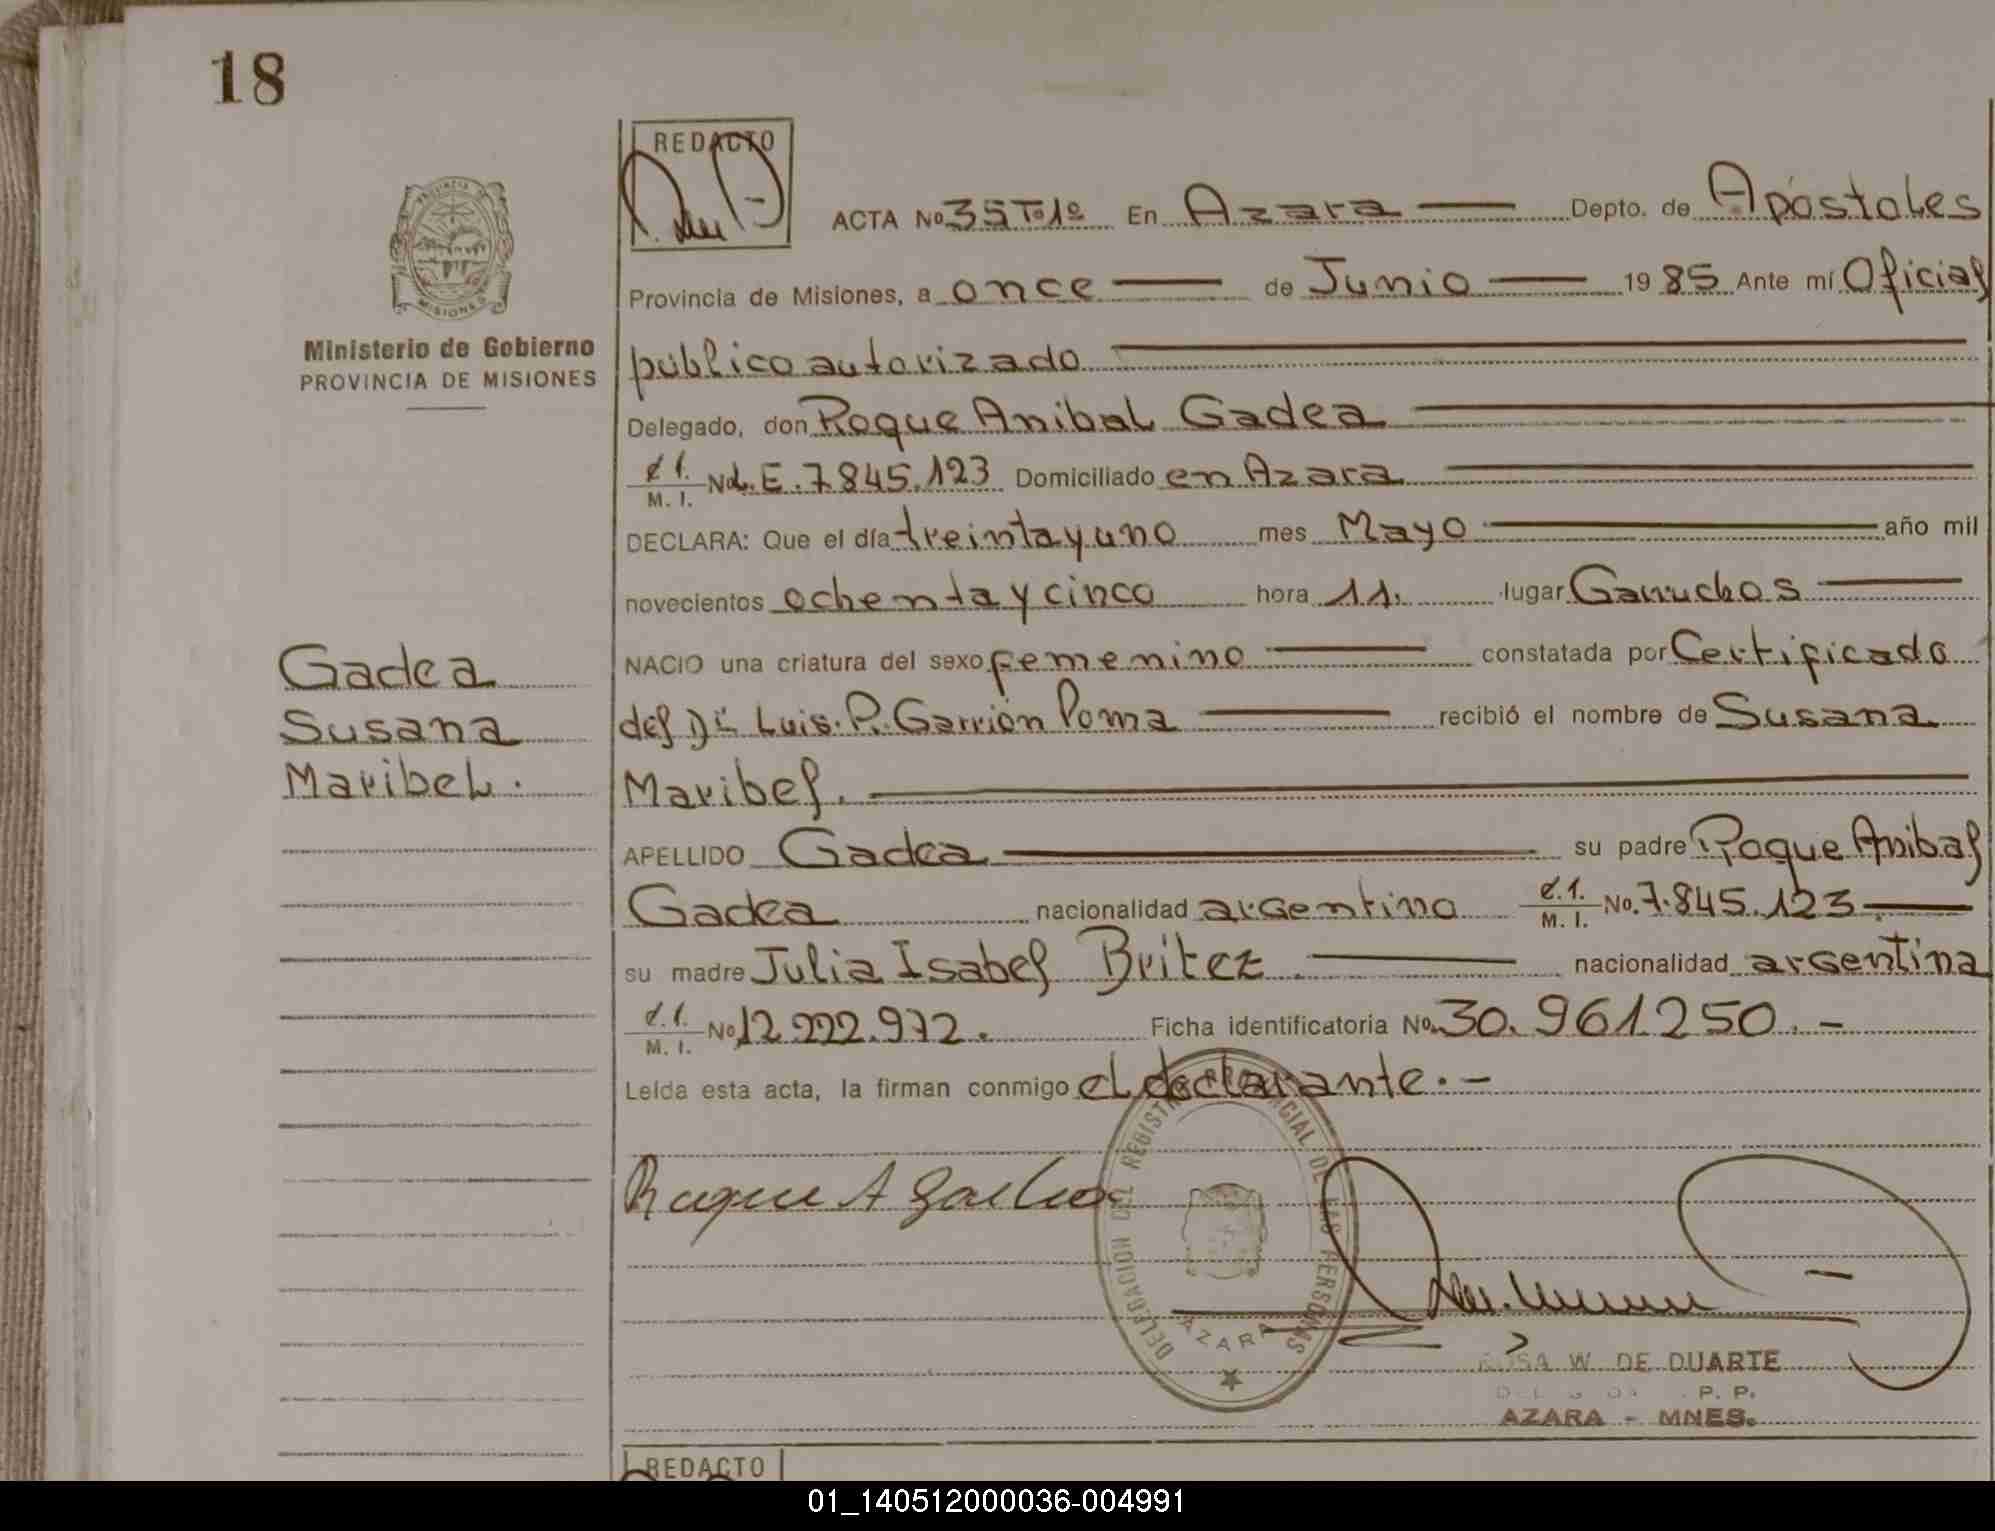 18
REDACTO
ACTA No 35 T.1º En Azara Depto. de Apóstoles
Provincia de Misiones, a once de Junio 1985 Ante mí Oficial
público autorizado
Ministerio de Gobierno
PROVINCIA DE MISIONES
Delegado, don Roque Anibal Gadea
C.I.
M. I. No L.E. 7.845.123 Domiciliado en Azara
DECLARA: Que el día treinta y uno mes Mayo año mil
novecientos ochenta y cinco hora 11. lugar Garruchos
NACIO una criatura del sexo femenino constatada por Certificado
del Dr. Luis. P. Garrión Poma recibió el nombre de Susana
Maribel.
Gadea
Susana
Maribel.
APELLIDO Gadea su padre Roque Anibal
Gadea nacionalidad argentino C.I.
M. I. No. 7.845.123
su madre Julia Isabel Britez. nacionalidad argentina
C.I.
M. I. No 12.222.972. Ficha identificatoria No. 30.961250.-
Leída esta acta, la firman conmigo el declarante.-
Roque A Gadea
DELEGACION DEL REGISTRO PROVINCIAL DE LAS PERSONAS
AZARA
ROSA W. DE DUARTE
P. P.
AZARA - MNES.
REDACTO
01_140512000036-004991